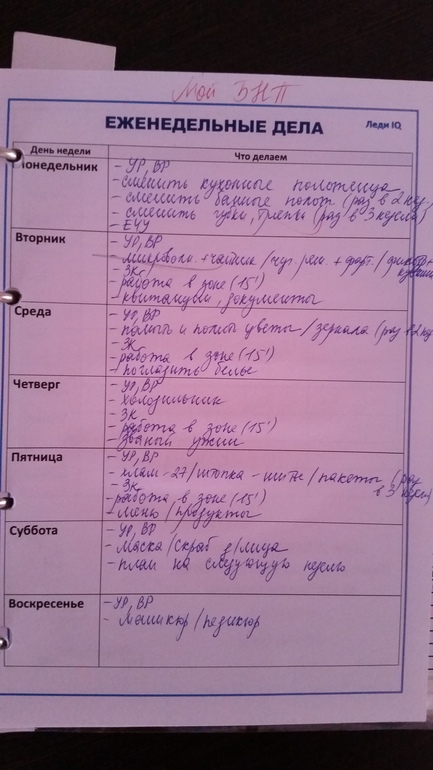 Мой БНП
ЕЖЕНЕДЕЛЬНЫЕ ДЕЛА
Леди IQ
День недели
Что делаем
Понедельник
- УР, ВР
- сменить кухонные полотенца
- сменить банные полот. (раз в 2 нед
- сменить губки, тряпки (раз в 3 недели)
- ЕЧУ
Вторник
- УР, ВР
- микроволн. + чайник /
- ЗК
- работа в зоне (15')
- квитанции, документы
Среда
- УР, ВР
- помыть и полить цветы / зеркала (раз в 2 нед
- ЗК
- работа в зоне (15')
- погладить белье
Четверг
- УР, ВР
- холодильник
- ЗК
- работа в зоне (15')
- званый ужин
Пятница
- УР, ВР
- хлам - 27 / штопка - шитье / пакеты (раз
в 3 недели)
- ЗК
- работа в зоне (15')
- меню / продукты
Суббота
- УР, ВР
- маска / скраб д/лица
- план на следующую неделю
Воскресенье
- УР, ВР
- маникюр / педикюр